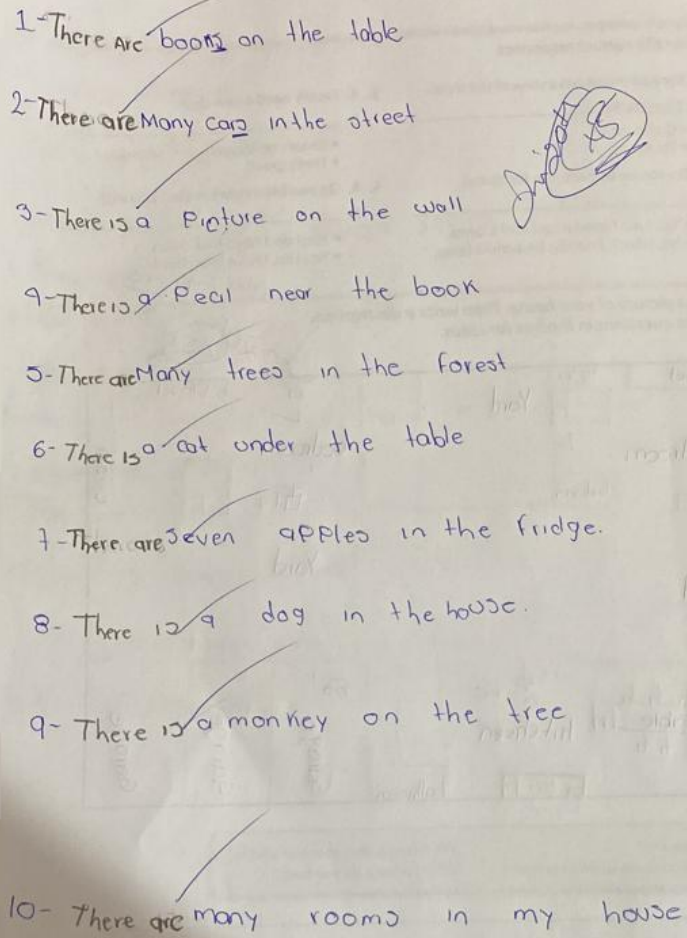 1-There Are books on the table
2-There are Many cars in the street
3-There is a Picture on the wall
4-There is a Pecil near the book
5-There are Many trees in the forest
6-There is a cat under the table
7-There are seven apples in the fridge.
8- There is a dog in the house.
9- There is a monkey on the tree
10- There are many rooms in my house